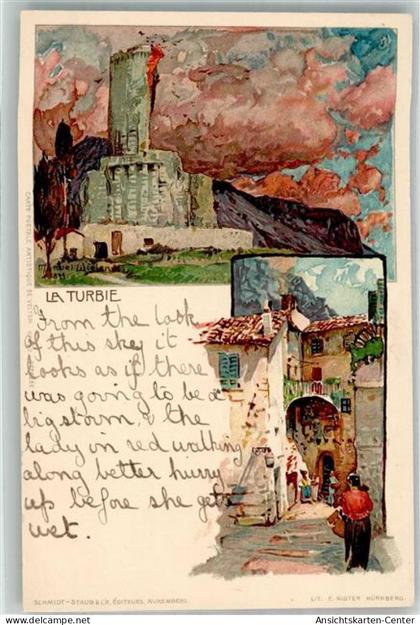 LA TURBIE
Manuel Wielandt
From the look
of this sky it
looks as if there
was going to be a
big storm, & the
lady in red walking
along better hurry
up before she gets
wet.
SCHMIDT-STAUB & Cie, ÉDITEURS, NUREMBERG.
LIT. E. NISTER NÜRNBERG.
Ansichtskarten-Center